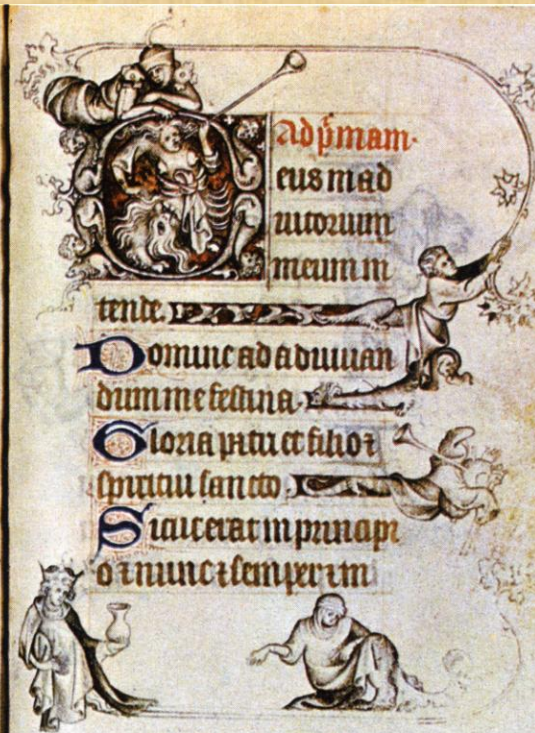 Ad p̄mam·
Deus in ad
iutorium
meum in
tende.
Domine ad adiuuan
dum me festina
Gloria patri et filio ⁊
spiritui sancto
Sicut erat in principi
o ⁊ nunc ⁊ semper ⁊ in